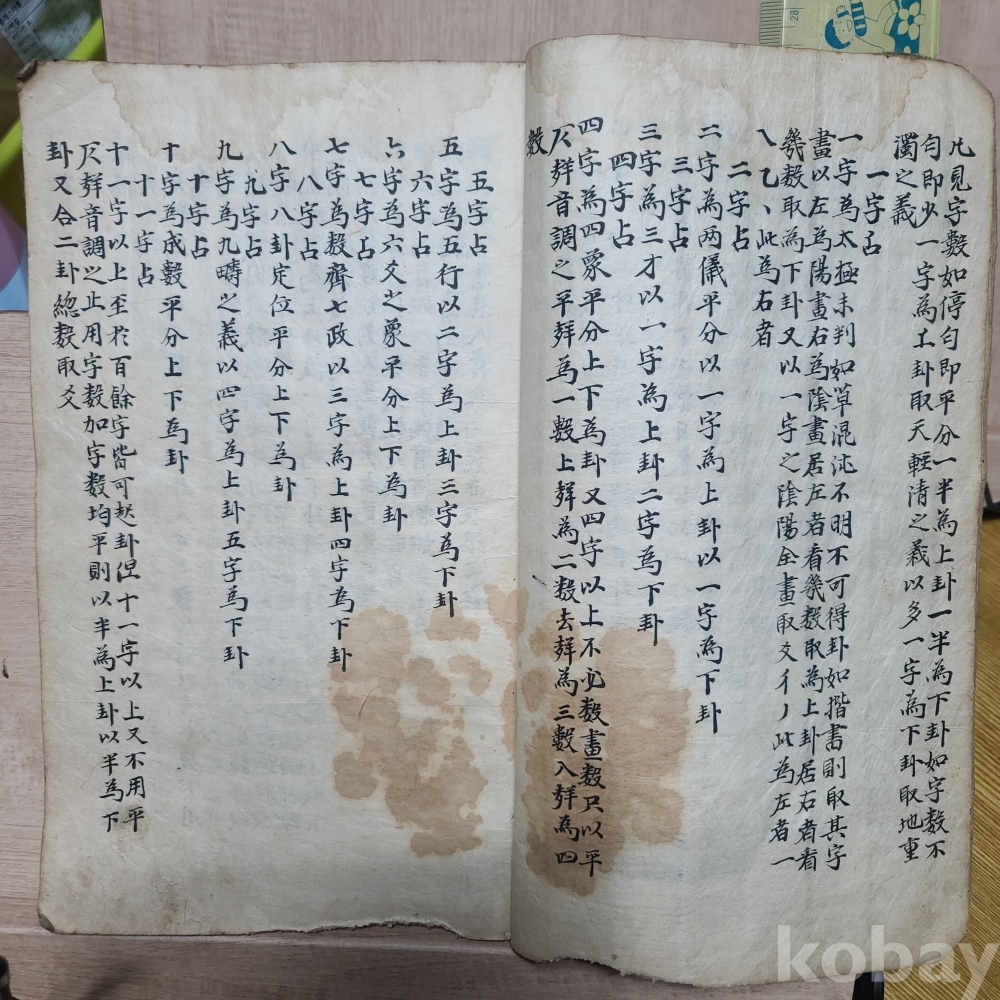 凡見字數如停勻即平分一半為上卦一半為下卦如字數不
勻即少一字為上卦取天輕清之義以多一字為下卦取地重
濁之義
一字占
一字為太極未判如草混沌不明不可得卦如揩書則取其字
畫以左為陽畫右為陰畫居左者看幾數取為上卦居右者看
幾數取為下卦又以一字之陰陽全畫取爻彳丿此為左者一
乀乙丶此為右者
二字占
二字為两儀平分以一字為上卦以一字為下卦
三字占
三字為三才以一字為上卦二字為下卦
四字占
四字為四象平分上下為卦又四字以上不必數畫數只以平
仄聲音調之平聲為一數上聲為二数去聲為三數入聲為四
數
五字占
五字為五行以二字為上卦三字為下卦
六字占
六字為六爻之象平分上下為卦
七字占
七字為数齊七政以三字為上卦四字為下卦
八字占
八字八卦定位平分上下為卦
九字占
九字為九疇之義以四字為上卦五字為下卦
十字占
十字為成數平分上下為卦
十一字占
十一字以上至於百餘字皆可起卦但十一字以上又不用平
仄聲音調之止用字数加字数均平則以半為上卦以半為下
卦又合二卦總数取爻
28
kobay